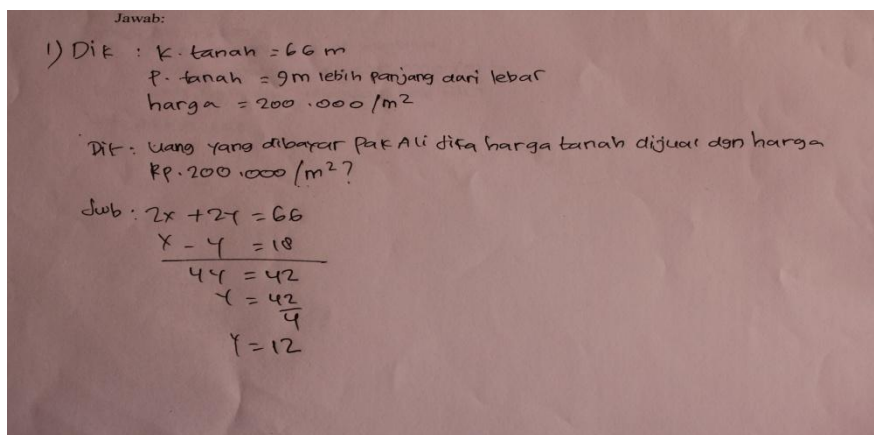 Jawab:
1) Dik : K. tanah = 66 m
P. tanah = 9m lebih panjang dari lebar
harga = 200.000 /m²
Dit : Uang yang dibayar Pak Ali jika harga tanah dijual dgn harga
Rp. 200.000 /m²?
Jwb : 2x + 2y = 66
x - y = 18
4y = 42
y = 42/4
y = 12